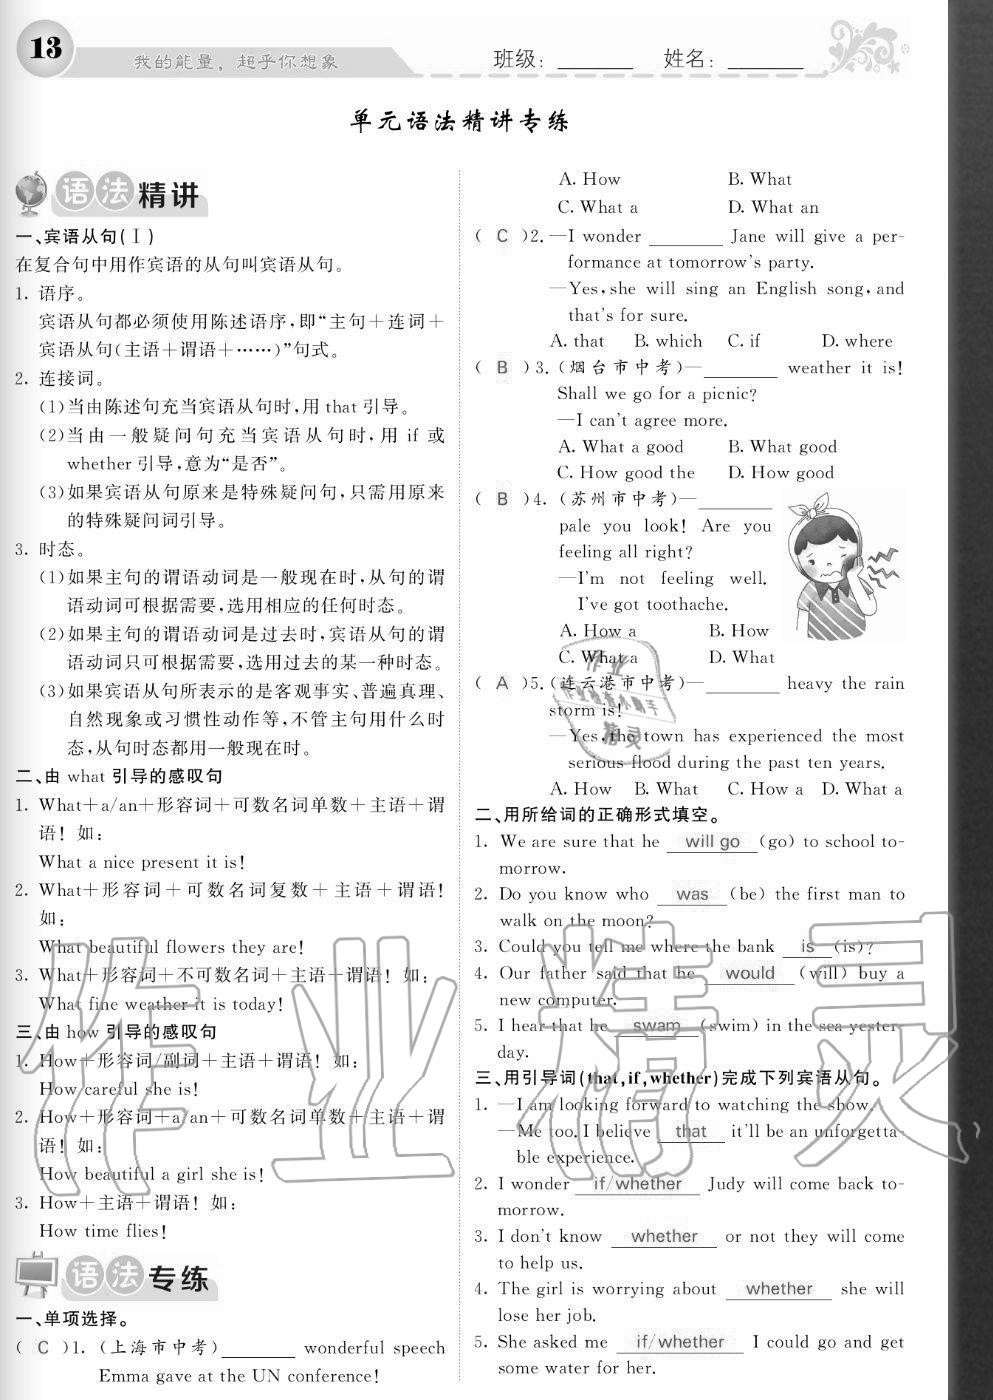 13
我的能量，超乎你想象
班级：
姓名：
单元语法精讲专练
语法精讲
一、宾语从句(Ⅰ)
在复合句中用作宾语的从句叫宾语从句。
1. 语序。
宾语从句都必须使用陈述语序,即“主句＋连词＋
宾语从句(主语＋谓语＋……)”句式。
2. 连接词。
(1)当由陈述句充当宾语从句时,用 that 引导。
(2)当由一般疑问句充当宾语从句时,用 if 或
whether 引导,意为“是否”。
(3)如果宾语从句原来是特殊疑问句,只需用原来
的特殊疑问词引导。
3. 时态。
(1)如果主句的谓语动词是一般现在时,从句的谓
语动词可根据需要,选用相应的任何时态。
(2)如果主句的谓语动词是过去时,宾语从句的谓
语动词只可根据需要,选用过去的某一种时态。
(3)如果宾语从句所表示的是客观事实、普遍真理、
自然现象或习惯性动作等,不管主句用什么时
态,从句时态都用一般现在时。
二、由 what 引导的感叹句
1. What＋a/an＋形容词＋可数名词单数＋主语＋谓
语！如:
What a nice present it is!
2. What＋形容词＋可数名词复数＋主语＋谓语!
如:
What beautiful flowers they are!
3. What＋形容词＋不可数名词＋主语＋谓语！如:
What fine weather it is today!
三、由 how 引导的感叹句
1. How＋形容词/副词＋主语＋谓语！如:
How careful she is!
2. How＋形容词＋a/an＋可数名词单数＋主语＋谓
语！如:
How beautiful a girl she is!
3. How＋主语＋谓语！如:
How time flies!
语法专练
一、单项选择。
( C )1. (上海市中考)________ wonderful speech
Emma gave at the UN conference!
A. How B. What
C. What a D. What an
( C )2. —I wonder ________ Jane will give a per-
formance at tomorrow's party.
—Yes, she will sing an English song, and
that's for sure.
A. that B. which C. if D. where
( B )3. (烟台市中考)—________ weather it is!
Shall we go for a picnic?
—I can't agree more.
A. What a good B. What good
C. How good the D. How good
( B )4. (苏州市中考)—________
pale you look! Are you
feeling all right?
—I'm not feeling well.
I've got toothache.
A. How a B. How
C. What a D. What
( A )5. (连云港市中考)—________ heavy the rain
storm is!
—Yes, the town has experienced the most
serious flood during the past ten years.
A. How B. What C. How a D. What a
二、用所给词的正确形式填空。
1. We are sure that he will go (go) to school to-
morrow.
2. Do you know who was (be) the first man to
walk on the moon?
3. Could you tell me where the bank is (is)?
4. Our father said that he would (will) buy a
new computer.
5. I hear that he swam (swim) in the sea yester-
day.
三、用引导词(that,if,whether)完成下列宾语从句。
1. —I am looking forward to watching the show.
—Me too. I believe that it'll be an unforgetta-
ble experience.
2. I wonder if/whether Judy will come back to-
morrow.
3. I don't know whether or not they will come
to help us.
4. The girl is worrying about whether she will
lose her job.
5. She asked me if/whether I could go and get
some water for her.
作业精灵